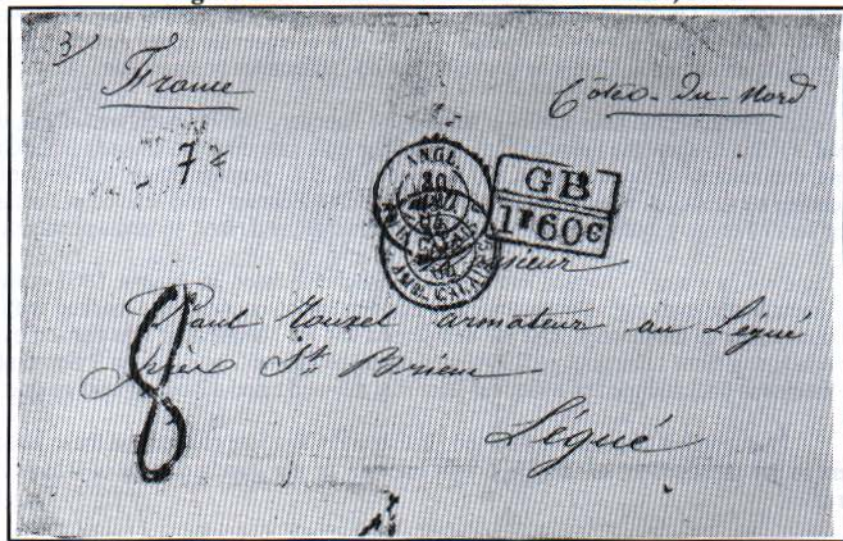 3/
France Côtes-du-Nord
7
ANGL.
GB
1F60c
AMB. CALAIS
Monsieur
Paul Rouxel armateur au Légué
près St Brieuc
8
Légué